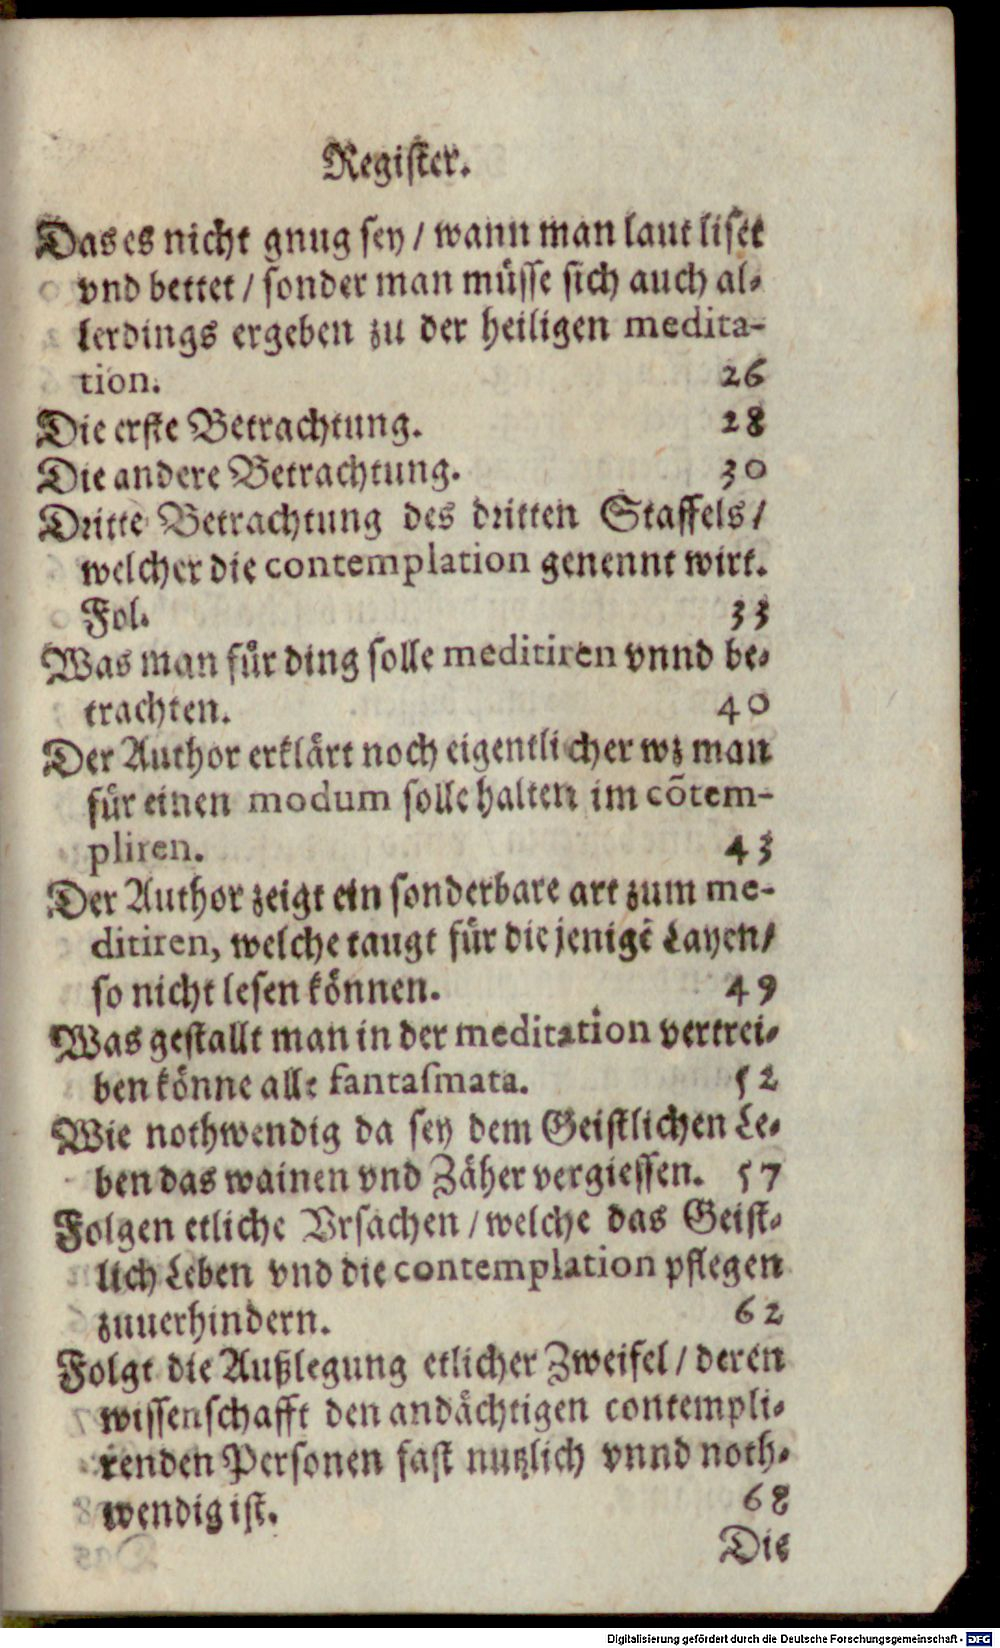 Register.
Das es nicht gnug sey / wann man laut liset
vnd bettet / sonder man müsse sich auch al-
lerdings ergeben zu der heiligen medita-
tion. 26
Die erste Betrachtung. 28
Die andere Betrachtung. 30
Dritte Betrachtung des dritten Staffels /
welcher die contemplation genennt wirt.
Fol. 33
Was man für ding solle meditiren vnnd be-
trachten. 40
Der Author erklärt noch eigentlicher wz man
für einen modum solle halten im cõtem-
pliren. 43
Der Author zeigt ein sonderbare art zum me-
ditiren, welche taugt für die jenigē Layen /
so nicht lesen können. 49
Was gestallt man in der meditation vertrei-
ben könne alle fantasmata. 52
Wie nothwendig da sey dem Geistlichen Le-
ben das wainen vnd Zäher vergiessen. 57
Folgen etliche Vrsachen / welche das Geist-
lich Leben vnd die contemplation pflegen
zuuerhindern. 62
Folgt die Außlegung etlicher Zweifel / deren
wissenschafft den andächtigen contempli-
renden Personen fast nutzlich vnnd noth-
wendig ist. 68
Die
Digitalisierung gefördert durch die Deutsche Forschungsgemeinschaft - DFG